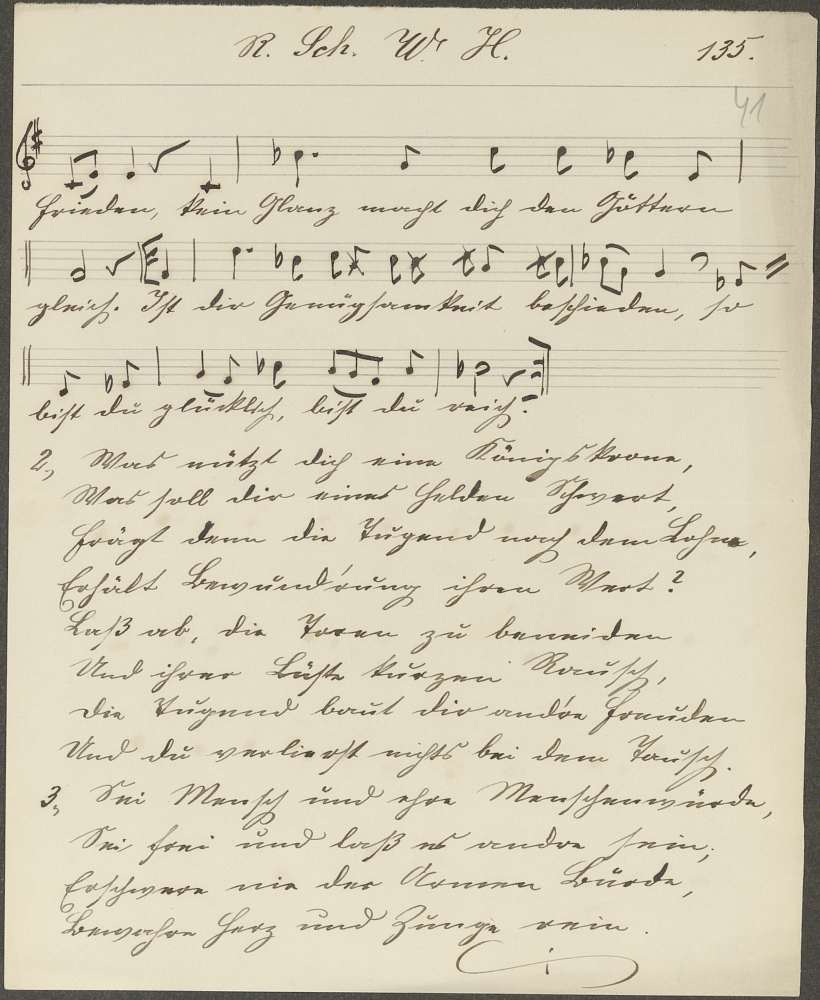 R. Sch. W. H. 135.
41
Frieden, kein Glanz macht dich den Göttern
gleich. Ist dir Genügsamkeit beschieden, so
bist du glücklich, bist du reich.
2, Was nützt dich eine Königskrone,
Was soll dir eines Helden Schwert,
Frägt denn die Tugend nach dem Lohne,
Erhält Bewund'rung ihren Wert?
Laß ab, die Toren zu beneiden
Und ihrer Lüste kurzen Rausch,
Die Tugend baut dir and're Freuden
Und du verlierst nichts bei dem Tausch.
3, Sei Mensch und ehre Menschenwürde,
Sei frei und laß es andre sein;
Erschwere nie der Armen Bürde,
Bewahre Herz und Zunge rein.